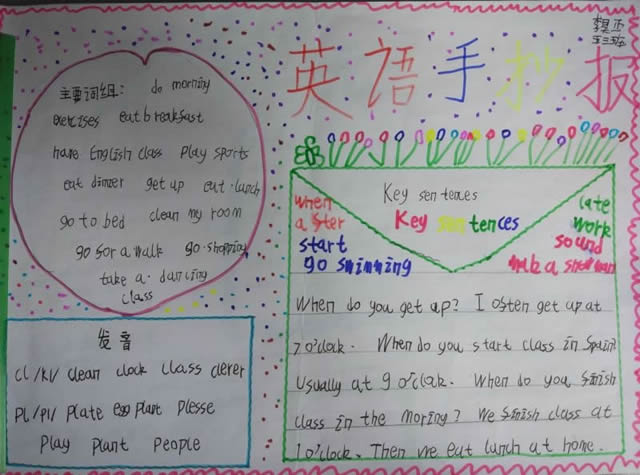 英语手抄报
五三班
主要词组： do morning
exercises eat breakfast
have English class play sports
eat dinner get up eat·lunch
go to bed clean my room
go for a walk go·shopping
take a·dancing
class
发音
cl /kl/ clean clock class clever
pl /pl/ plate eggplant plesse
play plant people
Key sentences
Key sentences
when
a ster
start
go swimming
late
work
sound
When do you get up? I often get up at
7 o'clock. When do you start class in Spain
Usually at 9 o'clock. When do you finish
class in the moring? We finish class at
1 o'clock. Then we eat lunch at home.